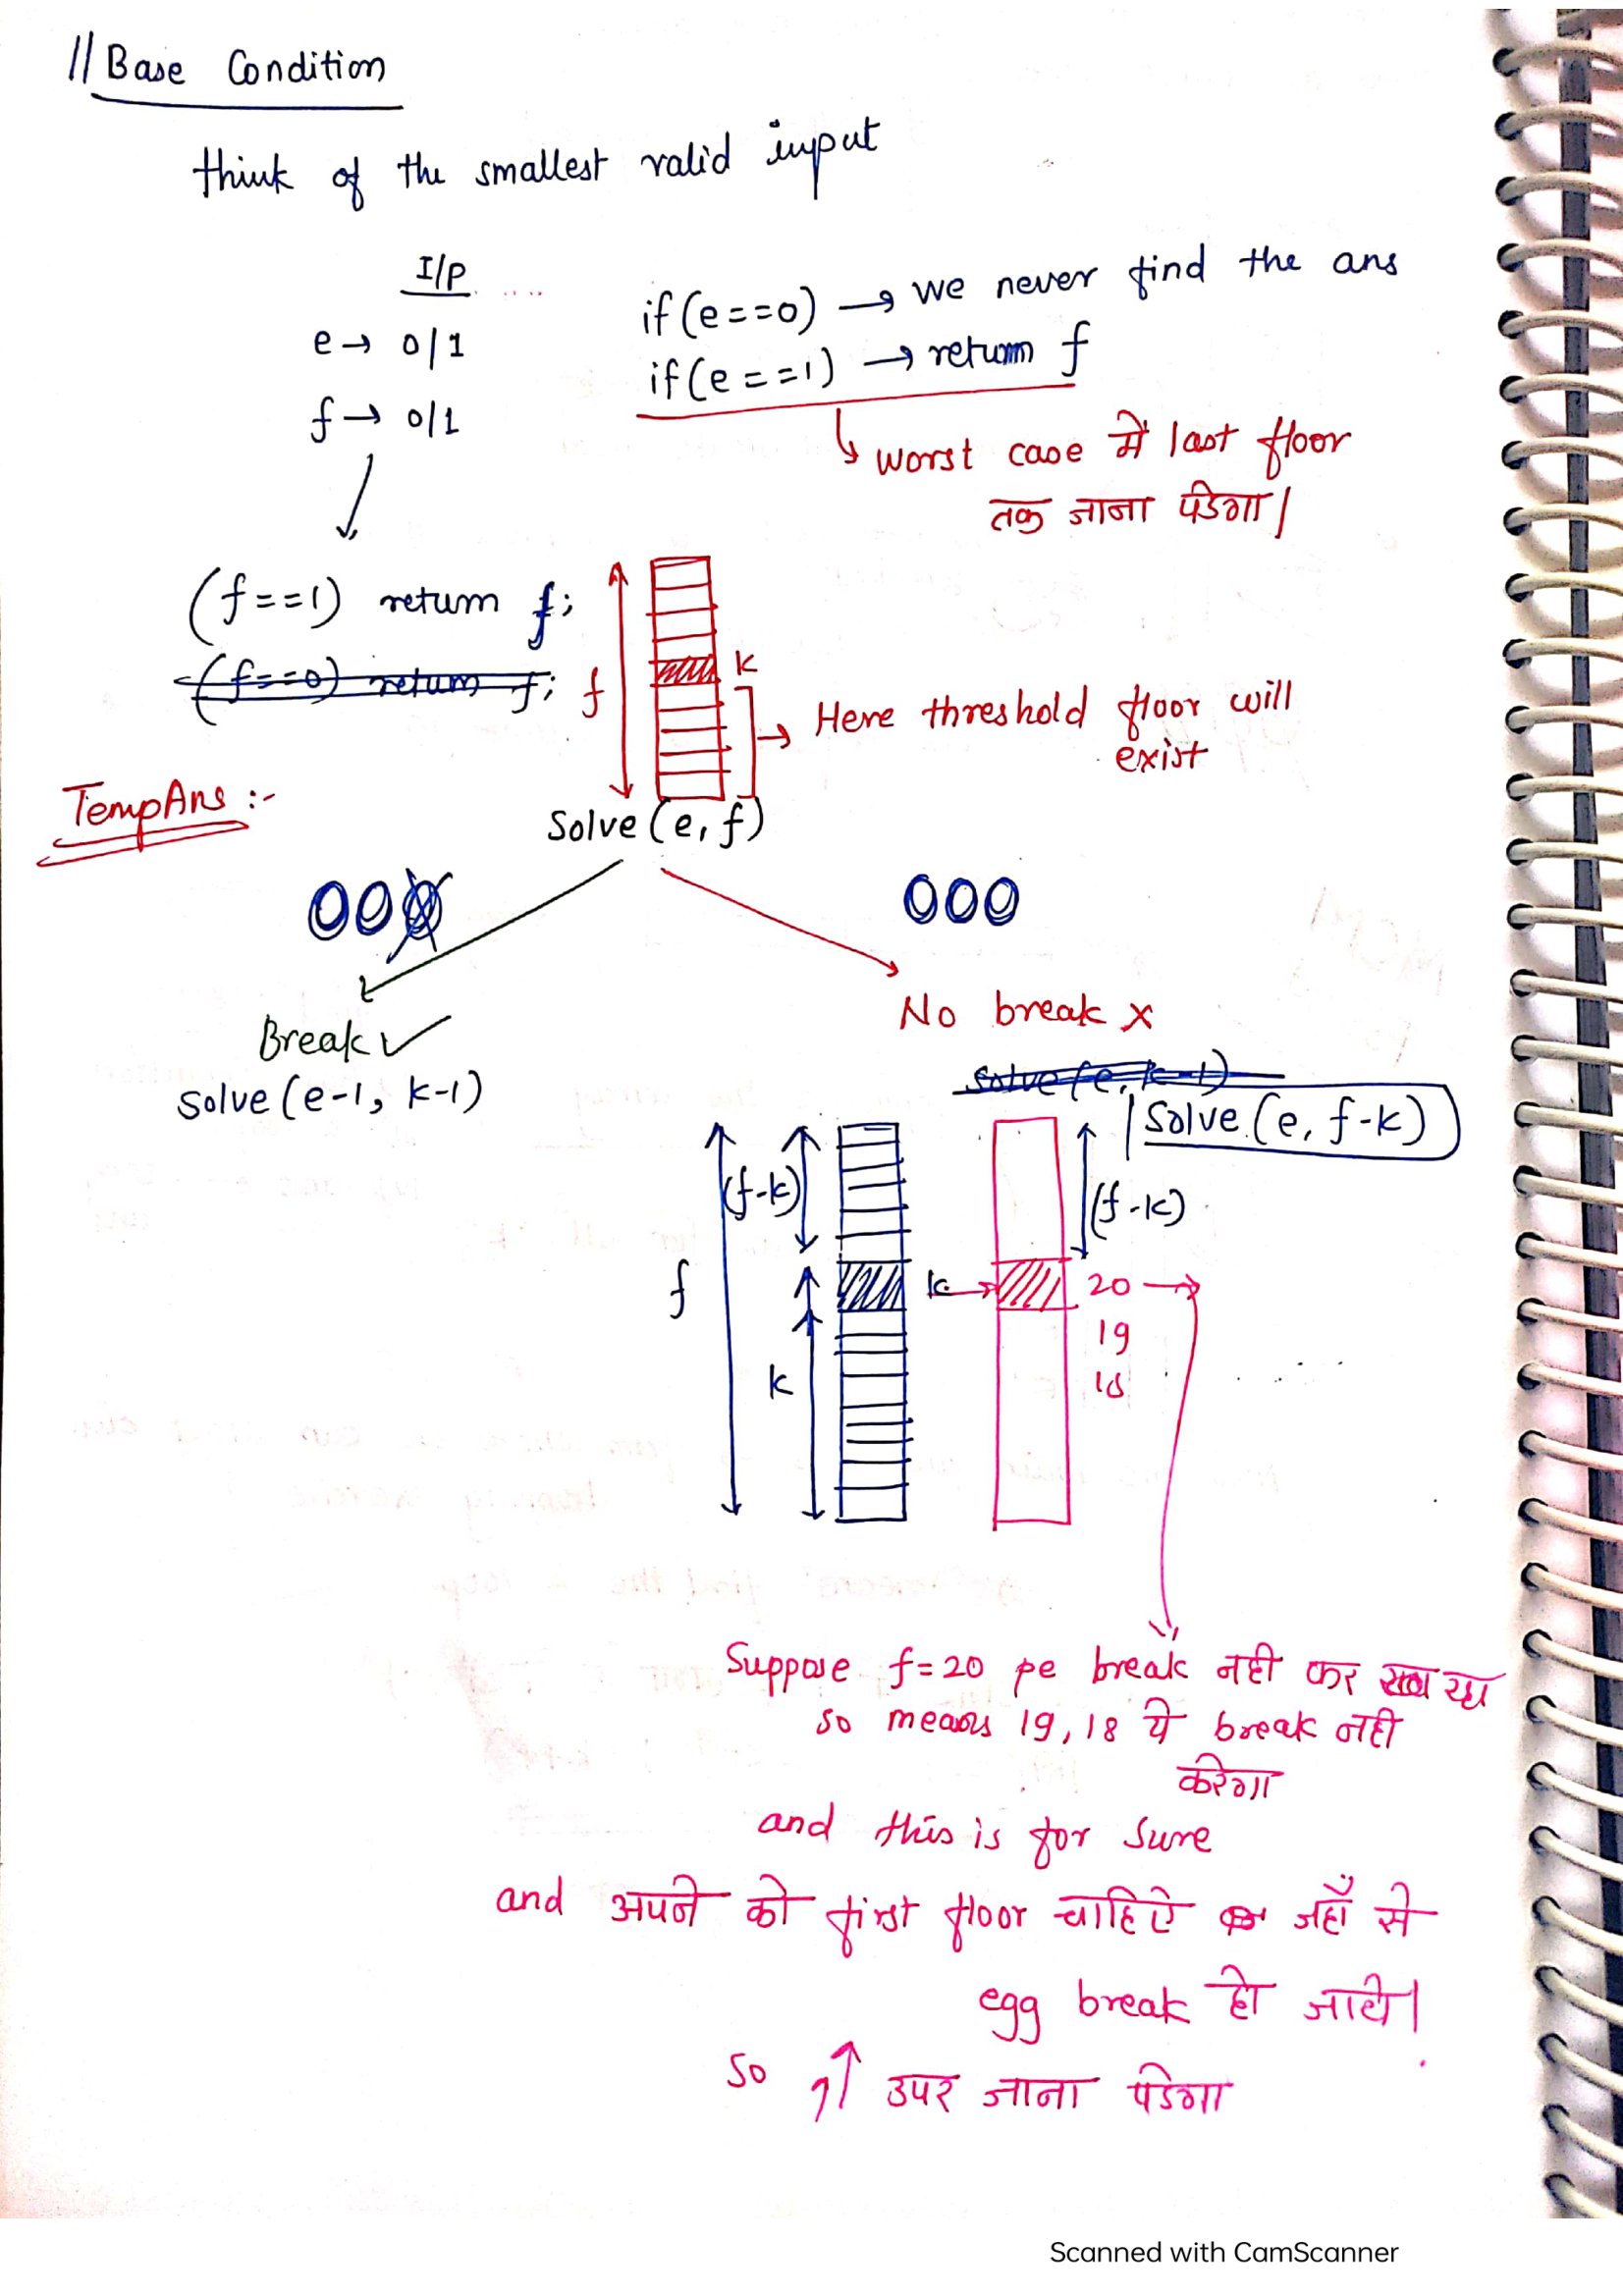 // Base Condition
think of the smallest valid input
I/P
e → 0/1
f → 0/1
if (e==0) → we never find the ans
if (e==1) → return f
worst case में last floor
तक जाना पडेगा।
(f==1) return f;
(f==0) return f;
f
K
Here threshold floor will
exist
TempAns :-
Solve (e, f)
Break ✓
solve (e-1, k-1)
No break x
solve (e, k-1)
Solve (e, f-k)
(f-k)
(f-k)
f
k
k
20 →
19
18
Suppose f=20 pe break नही कर रहा
so means 19, 18 पे break नही
करेगा
and this is for sure
and अपने को first floor चाहिऐ जहाँ से
egg break हो जाये।
so ↑ उपर जाना पडेगा
Scanned with CamScanner